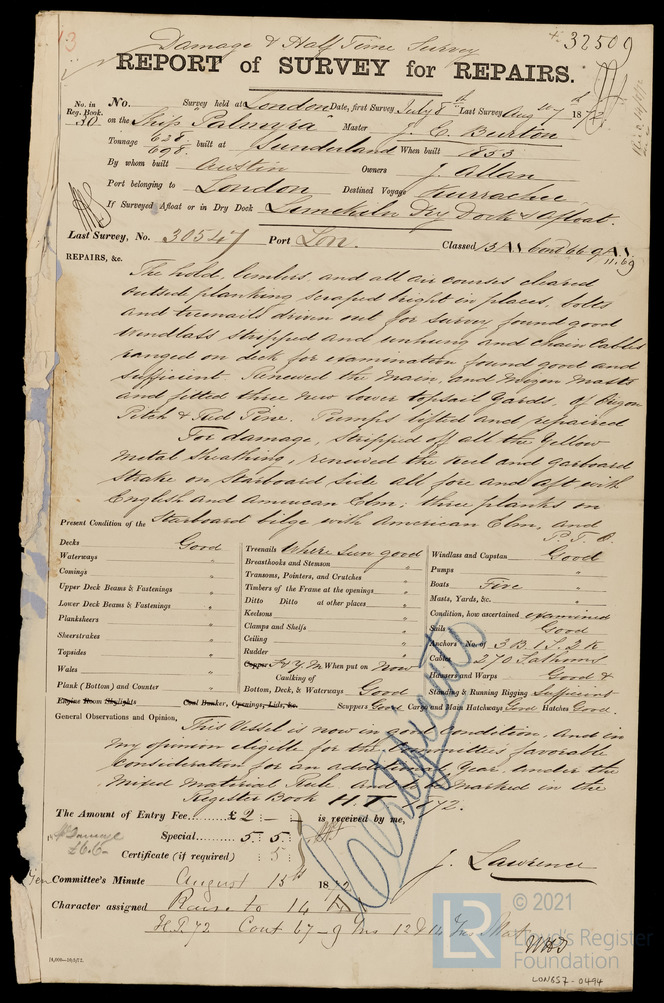 13
Damage & Half Time Survey
32509
REPORT of SURVEY for REPAIRS.
No. in Reg. Book. 30
No. Survey held at London Date, first Survey July 8th Last Survey Aug 7th 1872
on the Ship "Palmyra" Master J. C. Burton
Tonnage 628 698 built at Sunderland When built 1853
By whom built Austin Owners J. Allan
Port belonging to London Destined Voyage Kurrachee
If Surveyed Afloat or in Dry Dock Limekiln Dry Dock & Afloat.
Last Survey, No. 30547 Port Lon. Classed 13 A1 Cont 66-9 A1 11.69
REPAIRS, &c.
The hold, limbers, and all air courses cleared
outside planking scraped bright in places, bolts
and treenails driven out for survey found good
windlass stripped and unhung and chain cables
ranged on deck for examination found good and
sufficient. Renewed the Main, and Mizen Masts
and fitted three new lower topsail yards, of Oregon
Pitch & Red Pine. Pumps lifted and repaired
For damage, stripped off all the Yellow
Metal Sheathing, renewed the keel and garboard
strake on Starboard side all fore and aft with
English and American Elm; three planks on
Starboard bilge with American Elm, and
P.T.O.
Present Condition of the
Decks Good
Waterways "
Coming's "
Upper Deck Beams & Fastenings "
Lower Deck Beams & Fastenings "
Planksheers "
Sheerstrakes "
Topsides "
Wales "
Plank (Bottom) and Counter "
Engine Room Skylights
Treenails Where seen good
Breasthooks and Stemson "
Transoms, Pointers, and Crutches "
Timbers of the Frame at the openings "
Ditto Ditto at other places "
Keelsons "
Clamps and Shelfs "
Ceiling "
Rudder "
Copper F & Y M When put on Now
Caulking of
Bottom, Deck, & Waterways Good
Coal Bunker, Openings, Lids, &c.
Scuppers Good Cargo and Main Hatchways Good Hatches Good.
Windlass and Capstan Good
Pumps "
Boats Five "
Masts, Yards, &c. "
Condition, how ascertained examined
Sails Good
Anchors No. of 3 B. 1 S. 2 K
Cables 270 Fathoms
Hawsers and Warps Good &
Standing & Running Rigging Sufficient
General Observations and Opinion,
This Vessel is now in good condition, and in
my opinion eligible for the Committee's favorable
Consideration for an additional Year, under the
Mixed Material Rule and to be Marked in the
Register Book H.T 1872.
The Amount of Entry Fee.... £2 : - : is received by me,
Special ........ 5 5
Damage £6.6-
Certificate (if required) : 5 :
J. Lawrence
Committee's Minute August 13th 1872
Character assigned Raise to 14
H.T. 72 Cont 67-9
© 2021
LR
Lloyd's Register
Foundation
LON657-0494